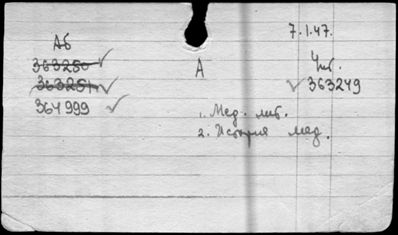 7.1.47.
Аб
363250
363251
364999
А
Чит.
363249
1. Мед. лит.
2. История мед.